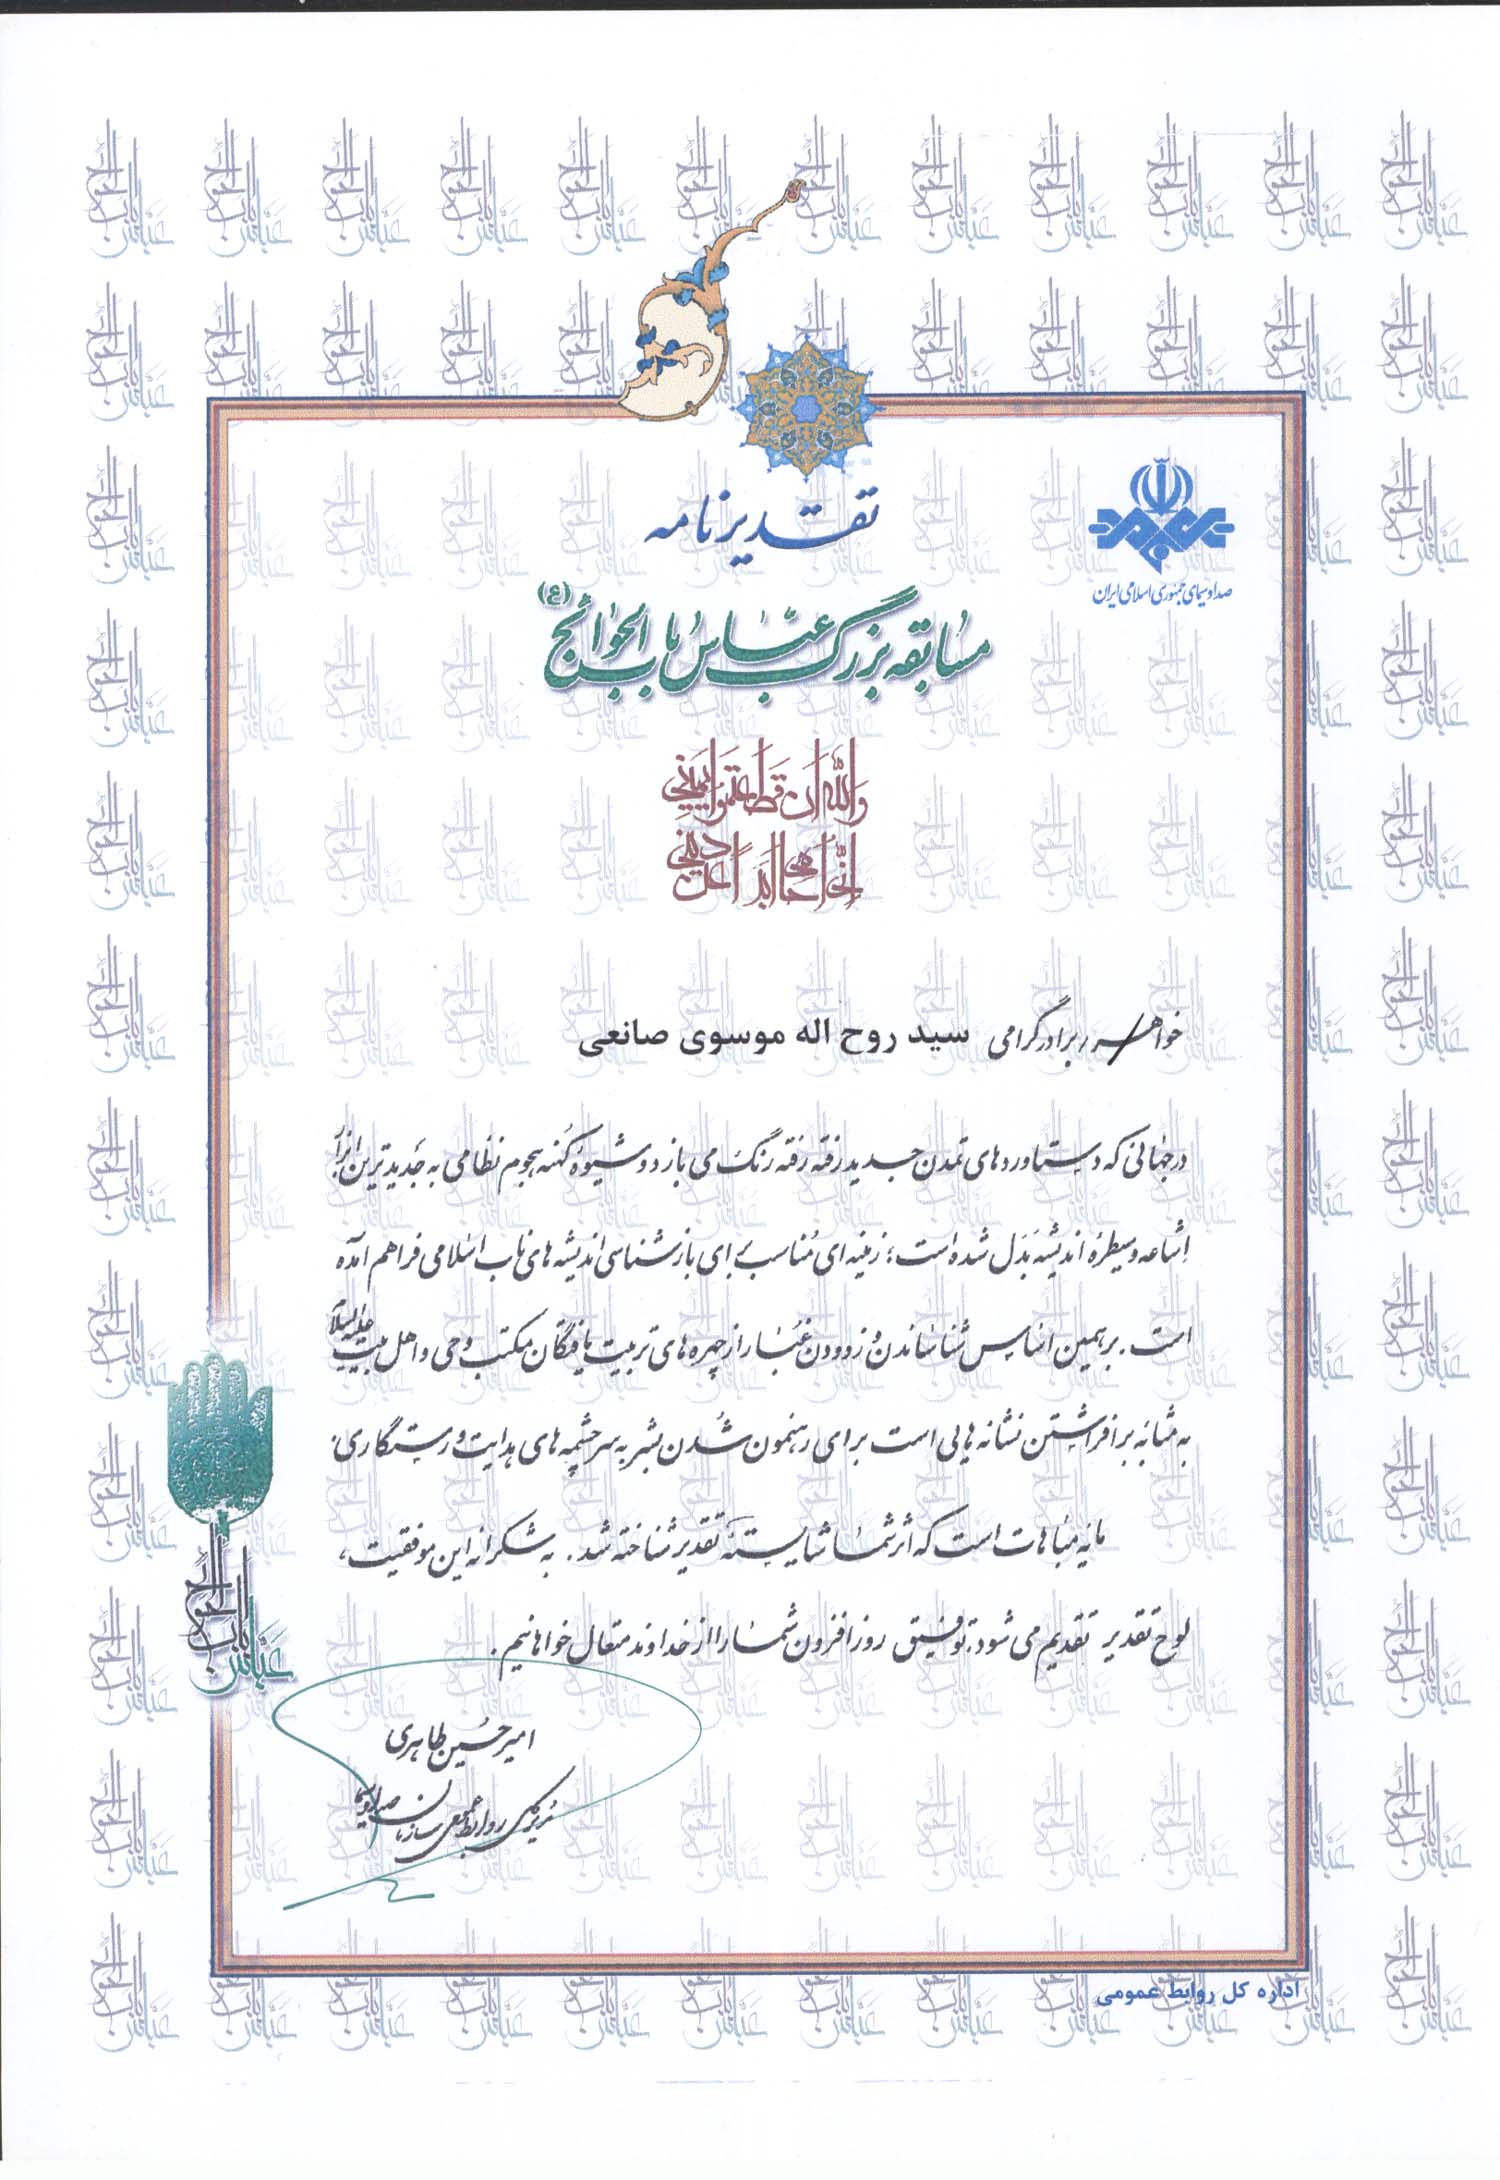 صدا و سیمای جمهوری اسلامی ایران
تقدیرنامه
مسابقه بزرگ عباس باب الحوائج (ع)
والله ان قطعتموا یمینی
انی احامی ابدا عن دینی
خواهر / برادر گرامی سید روح اله موسوی صانعی
درجهانی که دستاوردهای تمدن جدید رفته رفته رنگ می بازد و شیوهٔ کهنه هجوم نظامی به جدیدترین ابزار
اشاعه و سیطرهٔ اندیشه بَدَل شده است؛ زمینه ای مُناسب برای بازشناسی اندیشه های ناب اسلامی فراهم آمده
است. بر همین اساس شناساندن و زدودن غبار از چهره های تربیت یافتگان مکتب وحی و اهل بیت علیهم السلام
به مثابه برافراشتن نشانه هایی است برای رهنمون شدن بشر به سرچشمه های هدایت و رستگاری.
مایه مباهات است که اثر شما شایستهٔ تقدیر شناخته شد. به شکرانه این موفقیت،
لوح تقدیر تقدیم می شود. توفیق روز افزون شما را از خداوند متعال خواهانیم.
عباس باب الحوائج
امیرحسین طاهری
مدیرکل روابط عمومی سازمان صدا و سیما
اداره کل روابط عمومی